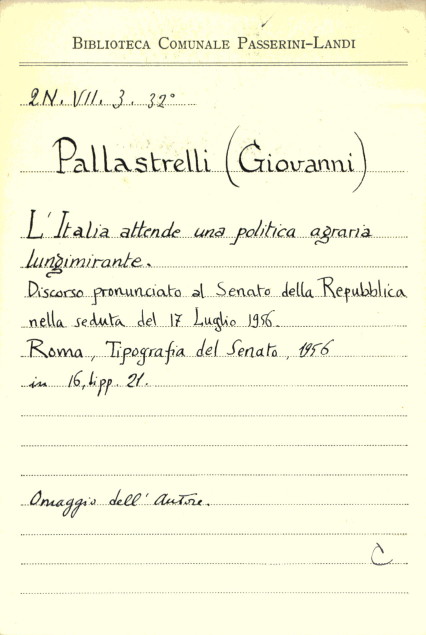 BIBLIOTECA COMUNALE PASSERINI-LANDI
2N. VII. 3. 32°
Pallastrelli (Giovanni)
L'Italia attende una politica agraria
lungimirante.
Discorso pronunciato al Senato della Repubblica
nella seduta del 17 Luglio 1956.
Roma, Tipografia del Senato, 1956
in 16, pp. 21.
Omaggio dell'Autore.
C